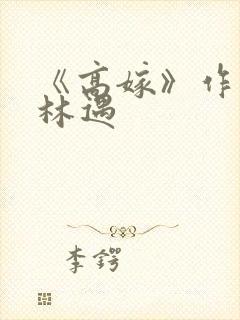 《高嫁》作
林遇
李鍔